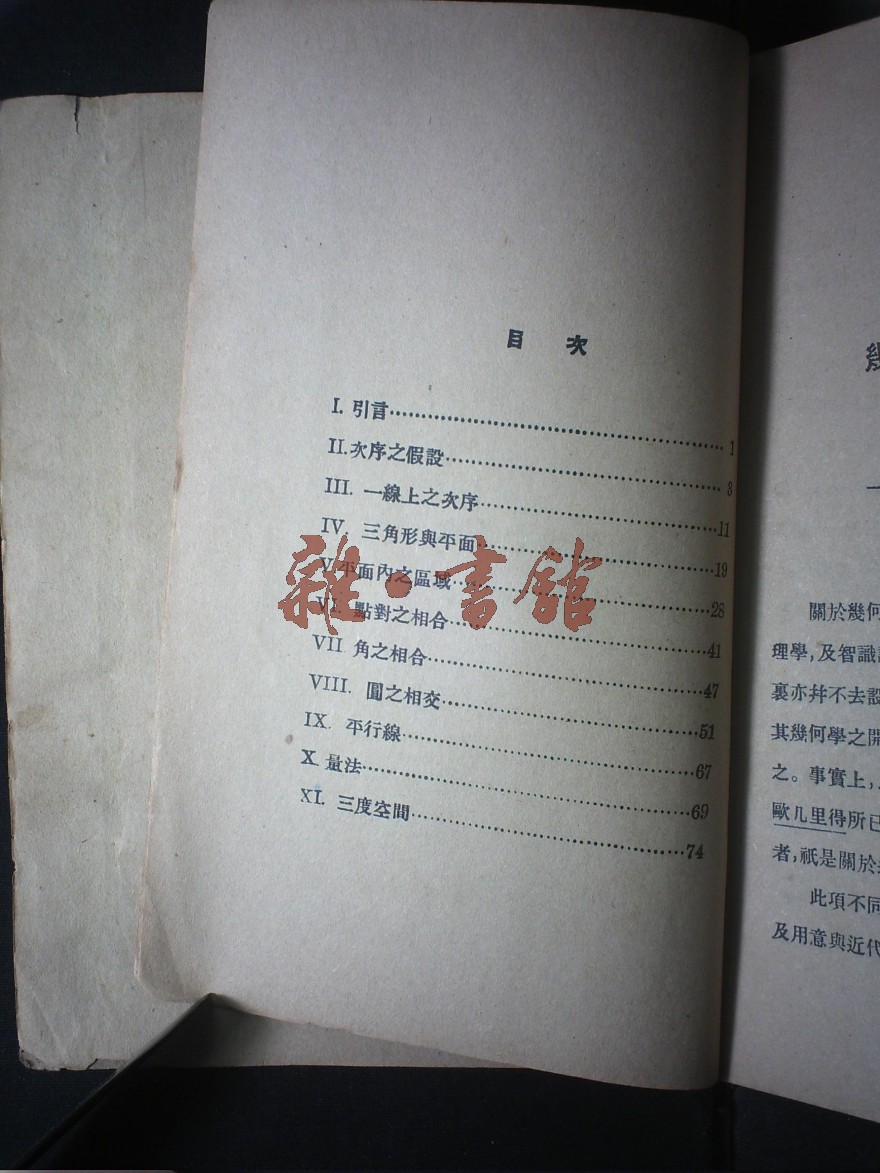 目 次
I. 引言……1
II.次序之假設……3
III. 一線上之次序……11
IV. 三角形與平面……19
V.平面內之區域……28
VI. 點對之相合……41
VII 角之相合……47
VIII. 圓之相交……51
IX. 平行線……67
X. 量法……69
XI. 三度空間……74
雜·書館
幾
一
關於幾何
理學,及智識
裏亦幷不去設
其幾何學之開
之。事實上,
歐几里得所已
者,祇是關於
此項不同
及用意與近代